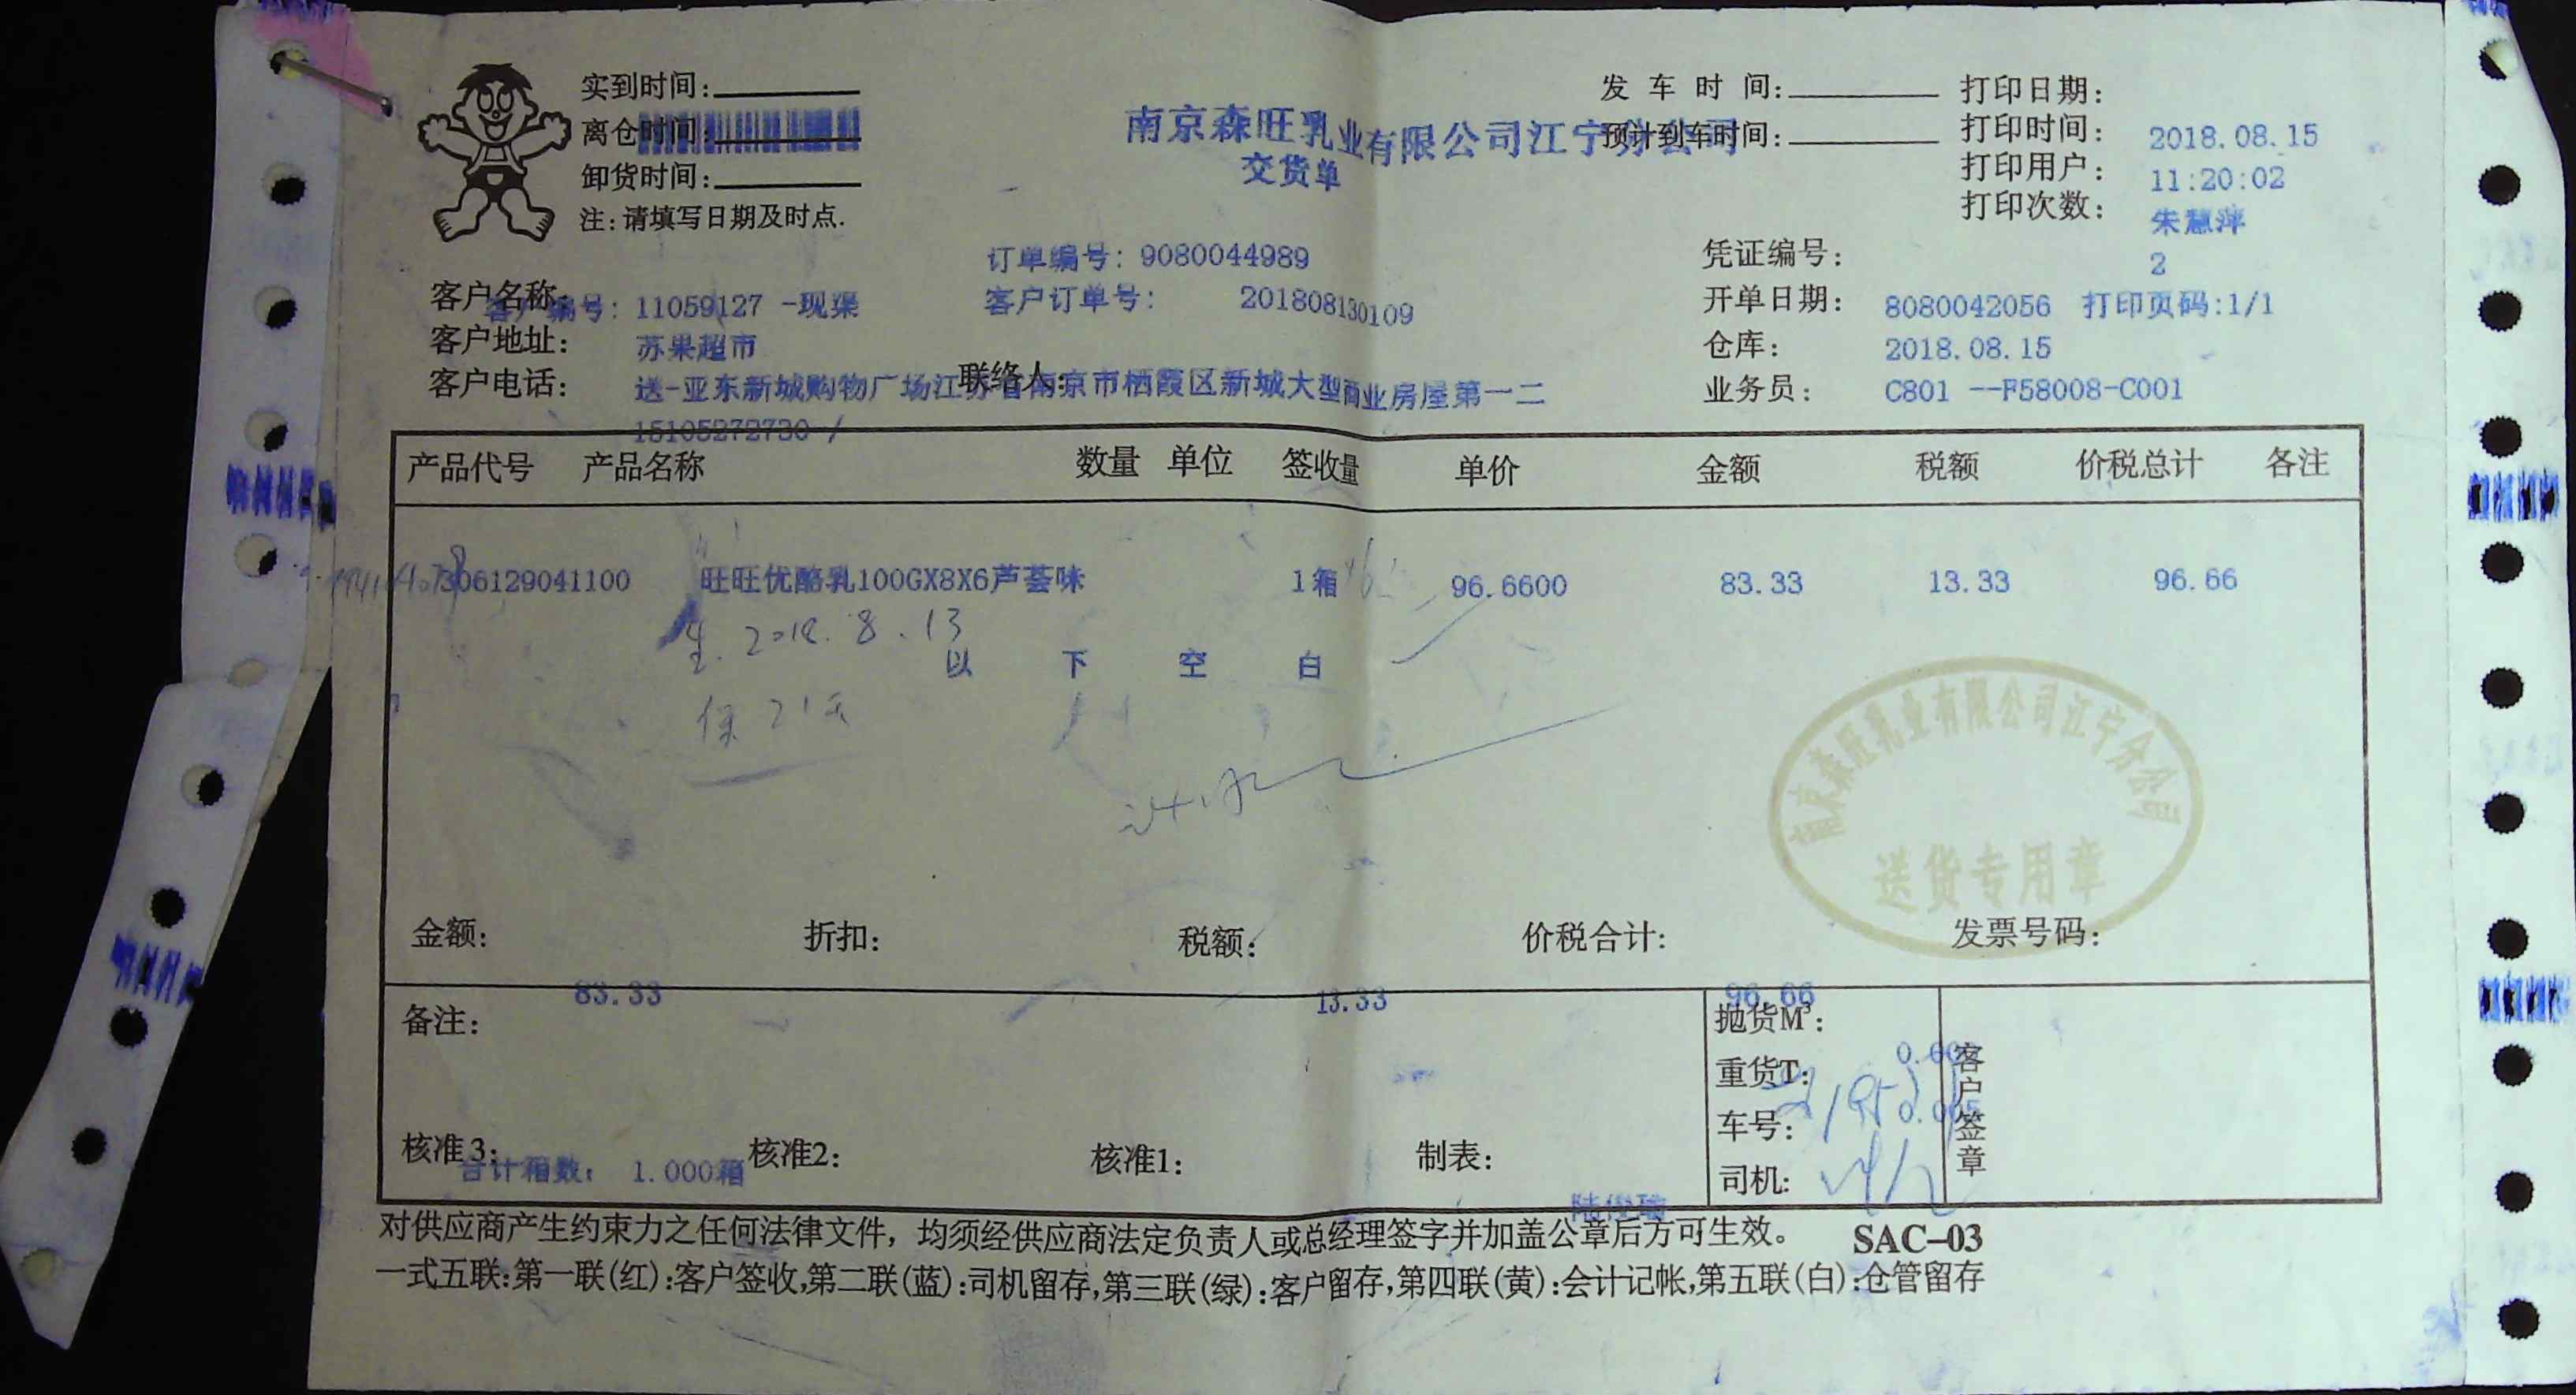 实到时间:
离仓时间:
卸货时间:
注:请填写日期及时点.
南京森旺乳业有限公司江宁分公司
交货单
发车时间:
预计到车时间:
打印日期: 2018.08.15
打印时间: 11:20:02
打印用户: 朱慧萍
打印次数: 2
订单编号: 9080044989
客户订单号: 201808130109
凭证编号: 8080042056 打印页码:1/1
开单日期: 2018.08.15
仓库: C801 --F58008-C001
业务员:
客户编号: 11059127 -现渠
客户名称: 苏果超市
客户地址: 送-亚东新城购物广场江苏省南京市栖霞区新城大型商业房屋第一二
客户电话: 15105272730 /
联络人:
产品代号 产品名称 数量 单位 签收量 单价 金额 税额 价税总计 各注
306129041100 旺旺优酪乳100GX8X6芦荟味 1箱 96.6600 83.33 13.33 96.66
生.2018.8.13
以 下 空 白
保21天
南京森旺乳业有限公司江宁分公司
送货专用章
金额: 折扣: 税额: 价税合计: 发票号码:
83.33 13.33 96.66
备注:
抛货M³:
重货T:
车号:
司机:
客户签章
核准3: 核准2: 核准1: 制表:
合计箱数: 1.000箱
对供应商产生约束力之任何法律文件，均须经供应商法定负责人或总经理签字并加盖公章后方可生效。 SAC-03
一式五联:第一联(红):客户签收,第二联(蓝):司机留存,第三联(绿):客户留存,第四联(黄):会计记帐,第五联(白):仓管留存